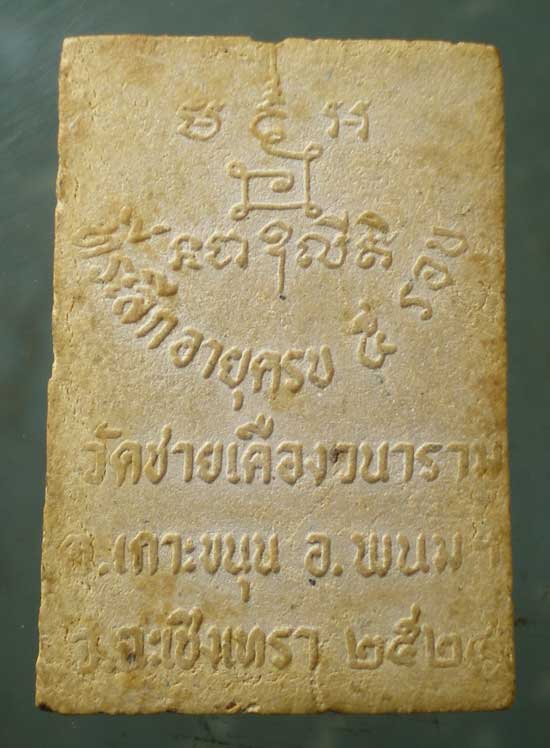 ที่ระลึกอายุครบ ๕ รอบ
วัดชายเคืองวนาราม
ต.เกาะขนุน อ.พนมฯ
จ.ฉะเชิงเทรา ๒๕๒๔